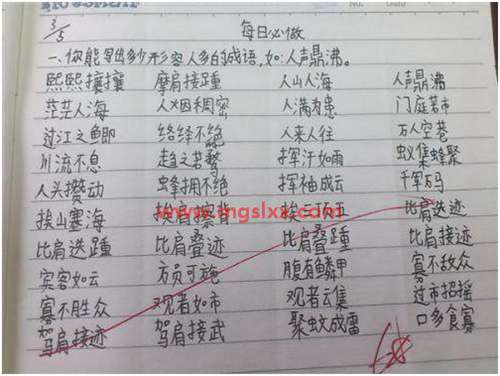 3/5 每日必做
一、你能写出多少形容人多的成语,如:人声鼎沸。
熙熙攘攘 摩肩接踵 人山人海 人声鼎沸
茫茫人海 人烟稠密 人满为患 门庭若市
过江之鲫 络绎不绝 人来人往 万人空巷
川流不息 趋之若鹜 挥汗如雨 蚁集蜂聚
人头攒动 蜂拥不绝 挥袖成云 千军万马
挨山塞海 挨肩擦背 比肩迭迹
www.mgslxx.com
比肩迭踵 比肩叠迹 比肩叠踵 比肩接迹
宾客如云 方员可施 腹有鳞甲 寡不敌众
寡不胜众 观者如市 观者云集 过市招摇
驾肩接迹 驾肩接武 聚蚊成雷 口多食寡